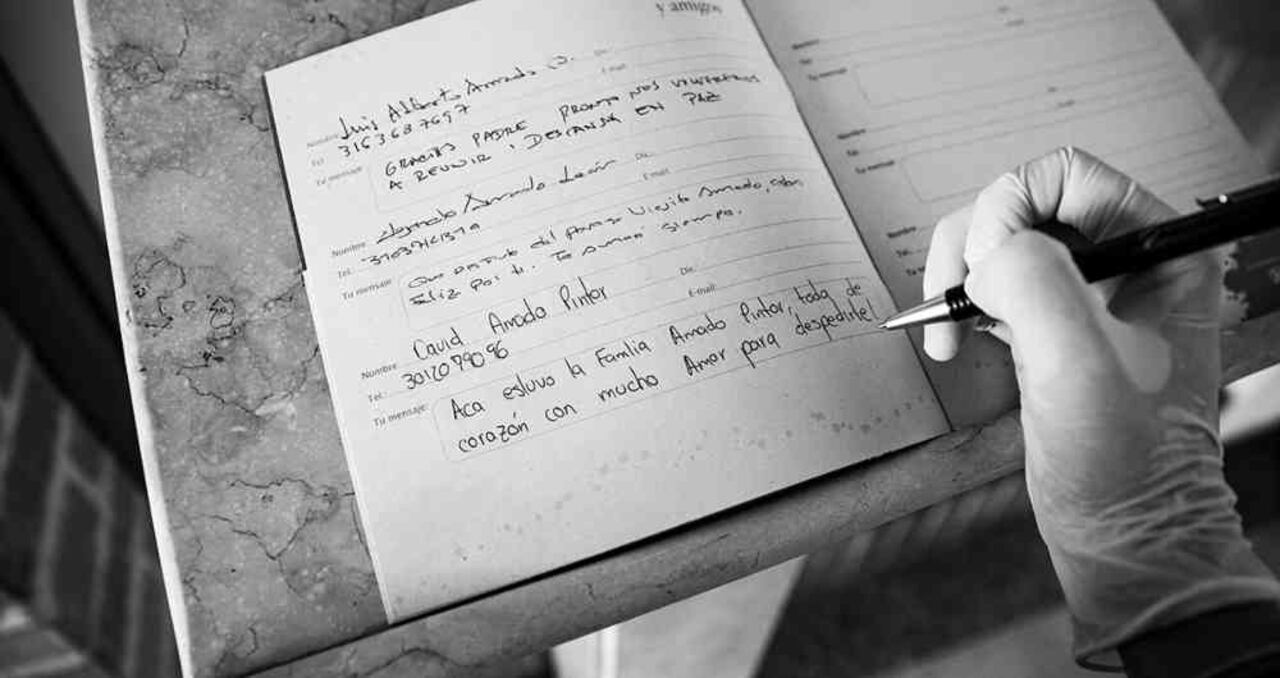 y amigos
Dir.:
Nombre Luis Alberto Amado J.
E-mail:
Tel: 3163687697
Tu mensaje: GRACIAS PADRE PRONTO NOS VOLVEREMOS
A REUNIR, DESCANSA EN PAZ
Dir.:
Nombre Amado León
E-mail:
Tel:
Tu mensaje: Que Disfrute del Viejito Amado, estoy
Feliz por ti. Te amo siempre.
Dir.:
Nombre David Amado Pintor
E-mail:
Tel.: 3012079096
Tu mensaje: Aca estuvo la Familia Amado Pintor, toda de
corazón con mucho Amor para despedirte!
Nombre
Tel:
Tu mensaje
Nombre
Tel:
Tu mensaje
Nombre
Tel:
Tu